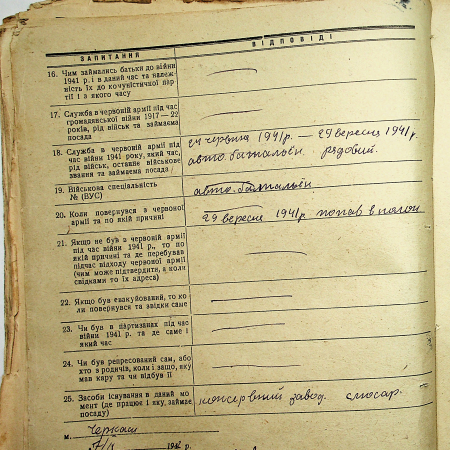 ЗАПИТАННЯ
ВІДПОВІДІ
16. Чим займались батьки до війни
1941 р. і в даний час та належ-
ність їх до комуністичної пар-
тії і з якого часу
17. Служба в червоній армії під час
громадянської війни 1917—22
років, рід військ та займаема
посада
18. Служба в червоній армії під
час війни 1941 року, який час,
рід військ, останнє військове
звання та займаема посада
24 червня 1941 р. — 29 вересня 1941 р.
авто. батальйон. рядовий.
19. Військова спеціальність
№ (ВУС)
авто. батальйон
20. Коли повернувся з червоної
армії та по якій причині
29 вересня 1941 р попав в полон
21. Якщо не був в червоній армії
під час війни 1941 р., то по
якій причині та де перебував
підчас відходу червоної армії
(чим може підтвердити, а коли
свідками то їх адреса)
22. Якщо був евакуйований, то ко-
ли повернувся та звідки саме
23. Чи був в партизанах під час
війни 1941 р. та де саме і
який час
24. Чи був репресований сам, або
хто з родичів, коли і защо, яку
мав кару та чи відбув її
25. Засоби існування в даний мо-
мент (де працює і яку, займає
посаду)
консервний завод. слюсар.
м. Черкаси
194 р.